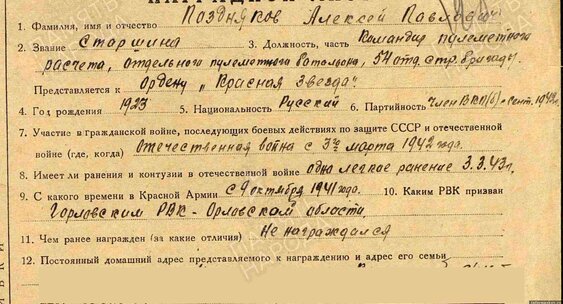 НАГРАДНОЙ ЛИСТ
1. Фамилия, имя и отчество Поздняков Алексей Павлович
2. Звание Старшина 3. Должность, часть Командир пулеметного
расчета, отдельного пулеметного батальона, 54 отд. стр. бригады.
Представляется к Ордену „Красная Звезда“.
4. Год рождения 1923 5. Национальность Русский 6. Партийность член ВКП(б) с сент. 1942г.
7. Участие в гражданской войне, последующих боевых действиях по защите СССР и отечественной
войне (где, когда) Отечественная война с 3го марта 1942 года.
8. Имеет ли ранения и контузии в отечественной войне одно легкое ранение 3.3.43г.
9. С какого времени в Красной Армии с 9 октября 1941 года. 10. Каким РВК призван
Горловским РВК - Орловской области.
11. Чем ранее награжден (за какие отличия) Не награждался
12. Постоянный домашний адрес представляемого к награждению и адрес его семьи